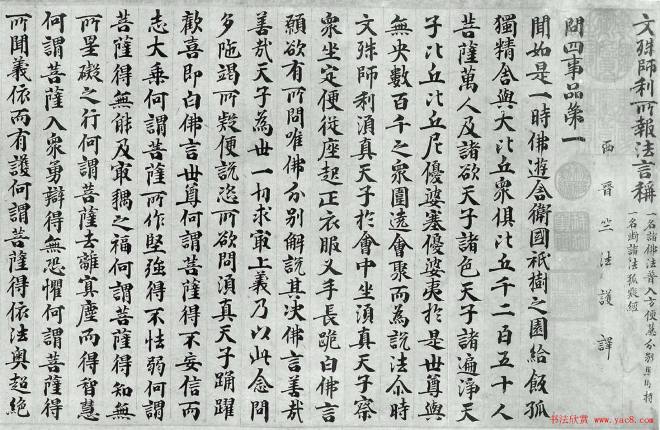 文殊師利所報法言稱
一名諸佛法普入方便慧分別炤明持
一名斷諸法狐疑經
西晉竺法護譯
問四事品第一
聞如是一時佛遊舍衛國祇樹之園給飯孤
獨精舍與大比丘衆俱比丘千二百五十人
菩薩萬人及諸欲天子諸色天子諸遍淨天
子比丘比丘尼優婆塞優婆夷於是世尊與
無央數百千之衆圍遶會聚而為說法尒時
文殊師利須真天子於會中坐須真天子察
衆坐定便從座起正衣服叉手長跪白佛言
願欲有所問唯佛分別解說其決佛言善哉
善哉天子為世一切求最上義乃以此念問
多陁竭所欵便說恣所欲問須真天子踊躍
歡喜即白佛言世尊何謂菩薩得不妄信而
志大乘何謂菩薩所作堅強得不怯弱何謂
菩薩得無能及最耦之福何謂菩薩得知無
所罣礙之行何謂菩薩去離寘塵而得智慧
何謂菩薩入衆勇辯得無恐懼何謂菩薩得
所聞義依而有護何謂菩薩得依法奥超絕
书法欣赏 www.yac8.com